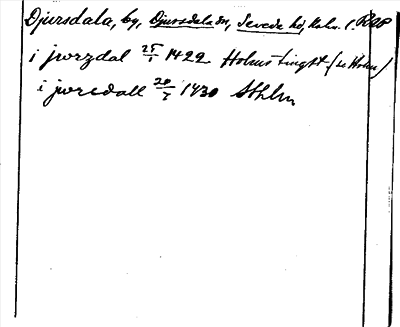 Djursdala, by, Djursdala sn, Sevede hd, Kalm. l.
i jwrzdal 25/1 1422 Holms tingst. (se Holm)
i jwredall 20/7 1430 Sthlm